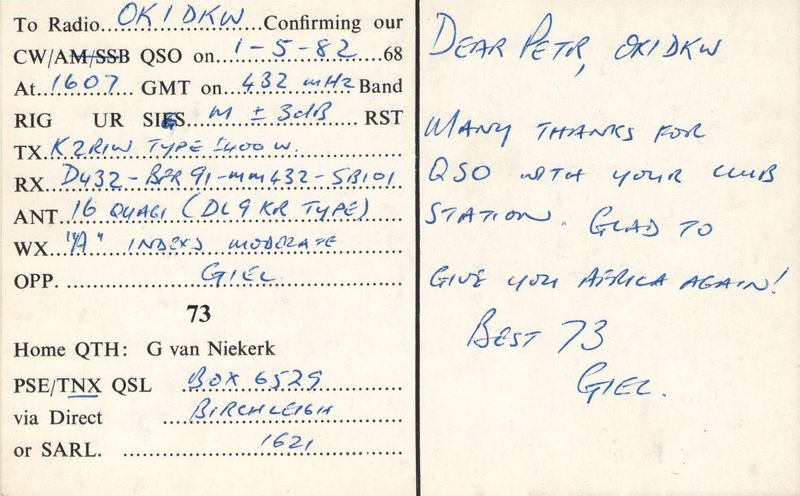 To Radio...OK1DKW...Confirming our
CW/AM/SSB QSO on...1-5-82...68
At...1607...GMT on...432 mHz Band
RIG UR SIGS...M ± 3dB...RST
TX...K2RIW TYPE 1400 W.
RX...D432-BFR91-mm432-SB101
ANT...16 QUAGI (DL9KR TYPE)
WX..."A" INDEXS MODERATE
OPP. ...GIEL
73
Home QTH: G van Niekerk
PSE/TNX QSL ...BOX 6529
via Direct ...BIRCHLEIGH
or SARL. ...1621
DEAR PETR, OK1DKW
MANY THANKS FOR
QSO WITH YOUR CLUB
STATION. GLAD TO
GIVE YOU AFRICA AGAIN!
BEST 73
GIEL.